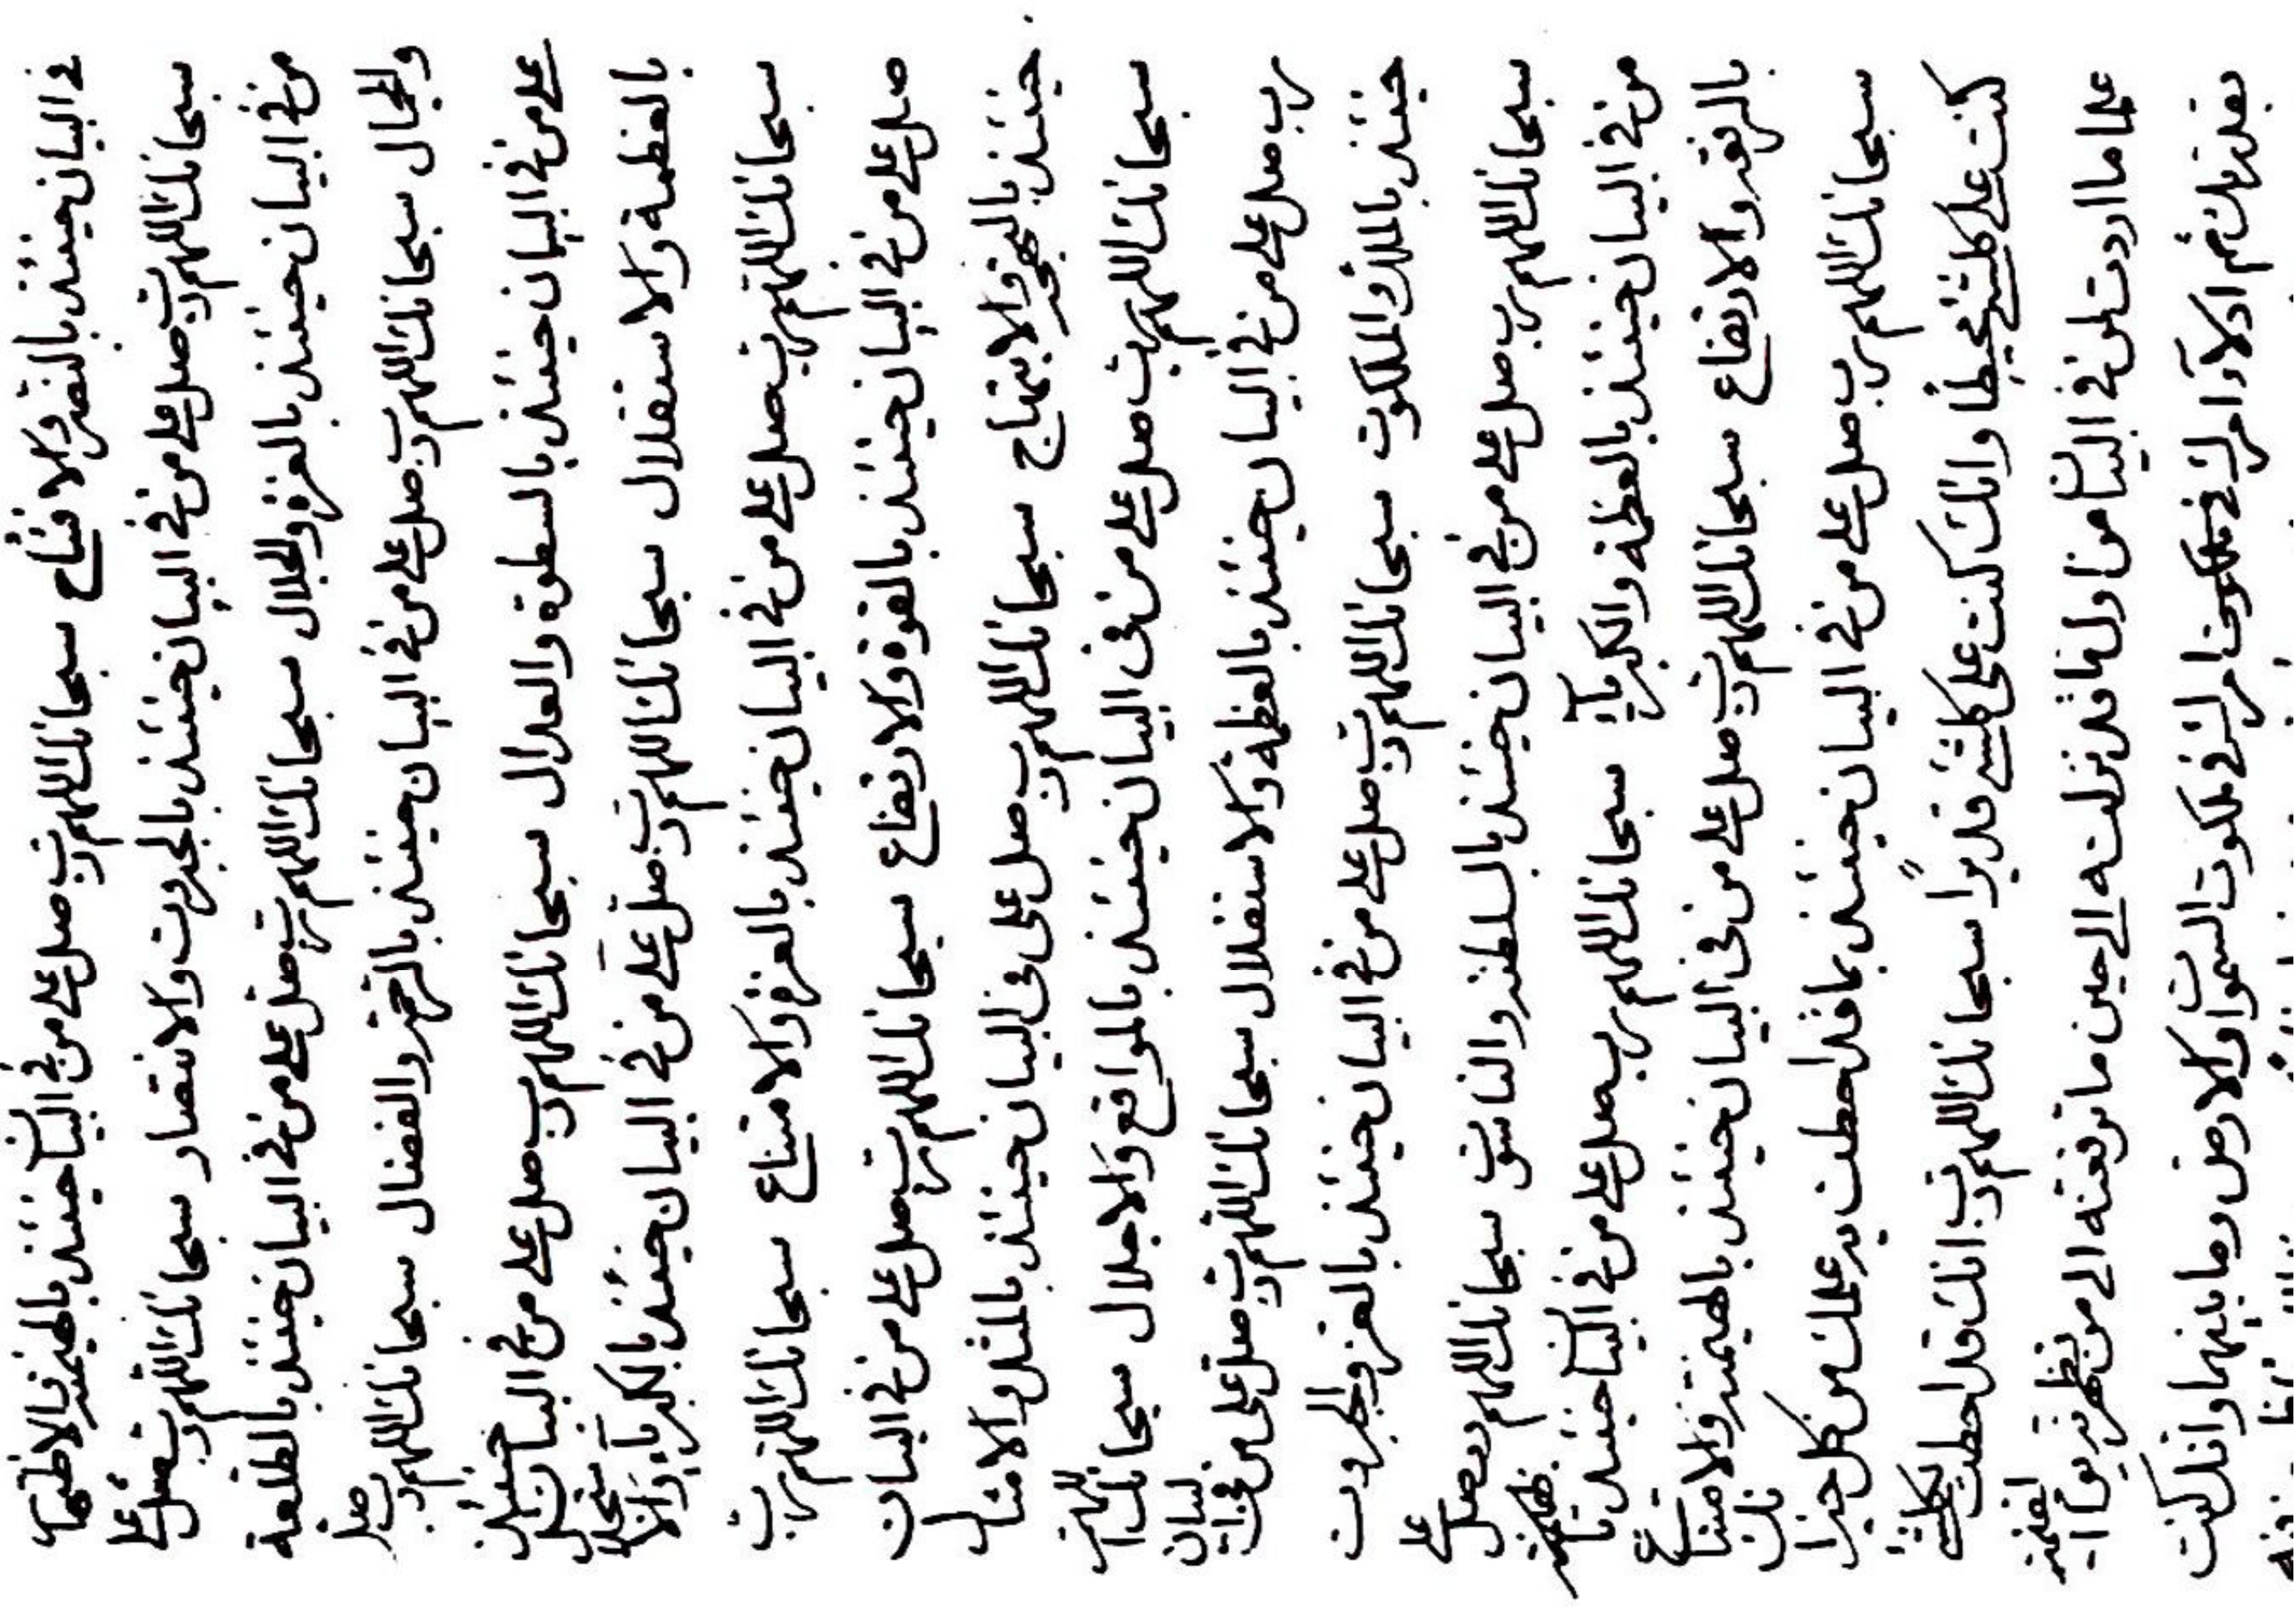 في البيان حينئذ بالنصر والافتتاح سبحانك اللهم رب صل على من في البيان حينئذ بالهيمنة والاظهار
سبحانك اللهم رب صل على من في البيان حينئذ بالجبروت والانتصار سبحانك اللهم رب صل على
من في البيان حينئذ بالعزة والجلال سبحانك اللهم رب صل على من في البيان حينئذ بالطلعة
والجمال سبحانك اللهم رب صل على من في البيان حينئذ بالرحمة والفضال سبحانك اللهم رب صل
على من في البيان حينئذ بالسطوة والعدال سبحانك اللهم رب صل على من في البيان حينئذ
بالعظمة والاستقلال سبحانك اللهم رب صل على من في البيان حينئذ بالكبرياء والاستجلال
سبحانك اللهم رب صل على من في البيان حينئذ بالعزة والامتناع سبحانك اللهم رب
صل على من في البيان حينئذ بالقوة والارتفاع سبحانك اللهم رب صل على من في البيان
حينئذ بالبهجة والابتهاج سبحانك اللهم رب صل على في البيان حينئذ بالمثل والامثال
سبحانك اللهم رب صل على من في البيان حينئذ بالمواقع والاجلال سبحانك اللهم
رب صل على من في البيان حينئذ بالعظمة والاستقلال سبحانك اللهم رب صل على من في البيان
حينئذ بالملك والملكوت سبحانك اللهم رب صل على من في البيان حينئذ بالعز والجبروت
سبحانك اللهم رب صل على من في البيان حينئذ بالسلطنة والناسوت سبحانك اللهم رب صل على
من في البيان حينئذ بالعظمة والكبرياء سبحانك اللهم رب صل على من في البيان حينئذ
بالرفعة والارتفاع سبحانك اللهم رب صل على من في البيان حينئذ بالهيمنة والامتناع
سبحانك اللهم رب صل على من في البيان حينئذ بما قد احطت به علمك من كل خير انك
كنت على كلشيء محيطا وانك كنت على كلشيء قديرا سبحانك اللهم رب انك قد احطت بكلشيء
علما ما اردت لمن في البيان من اول ما قد نزلته الى حين ما ترفعته الى من تظهرنه يوم القيمة
بقدرتك ثم ادلاء امرك في ملكوت امرك في ملكوت السموات والارض وما بينهما وانك كنت